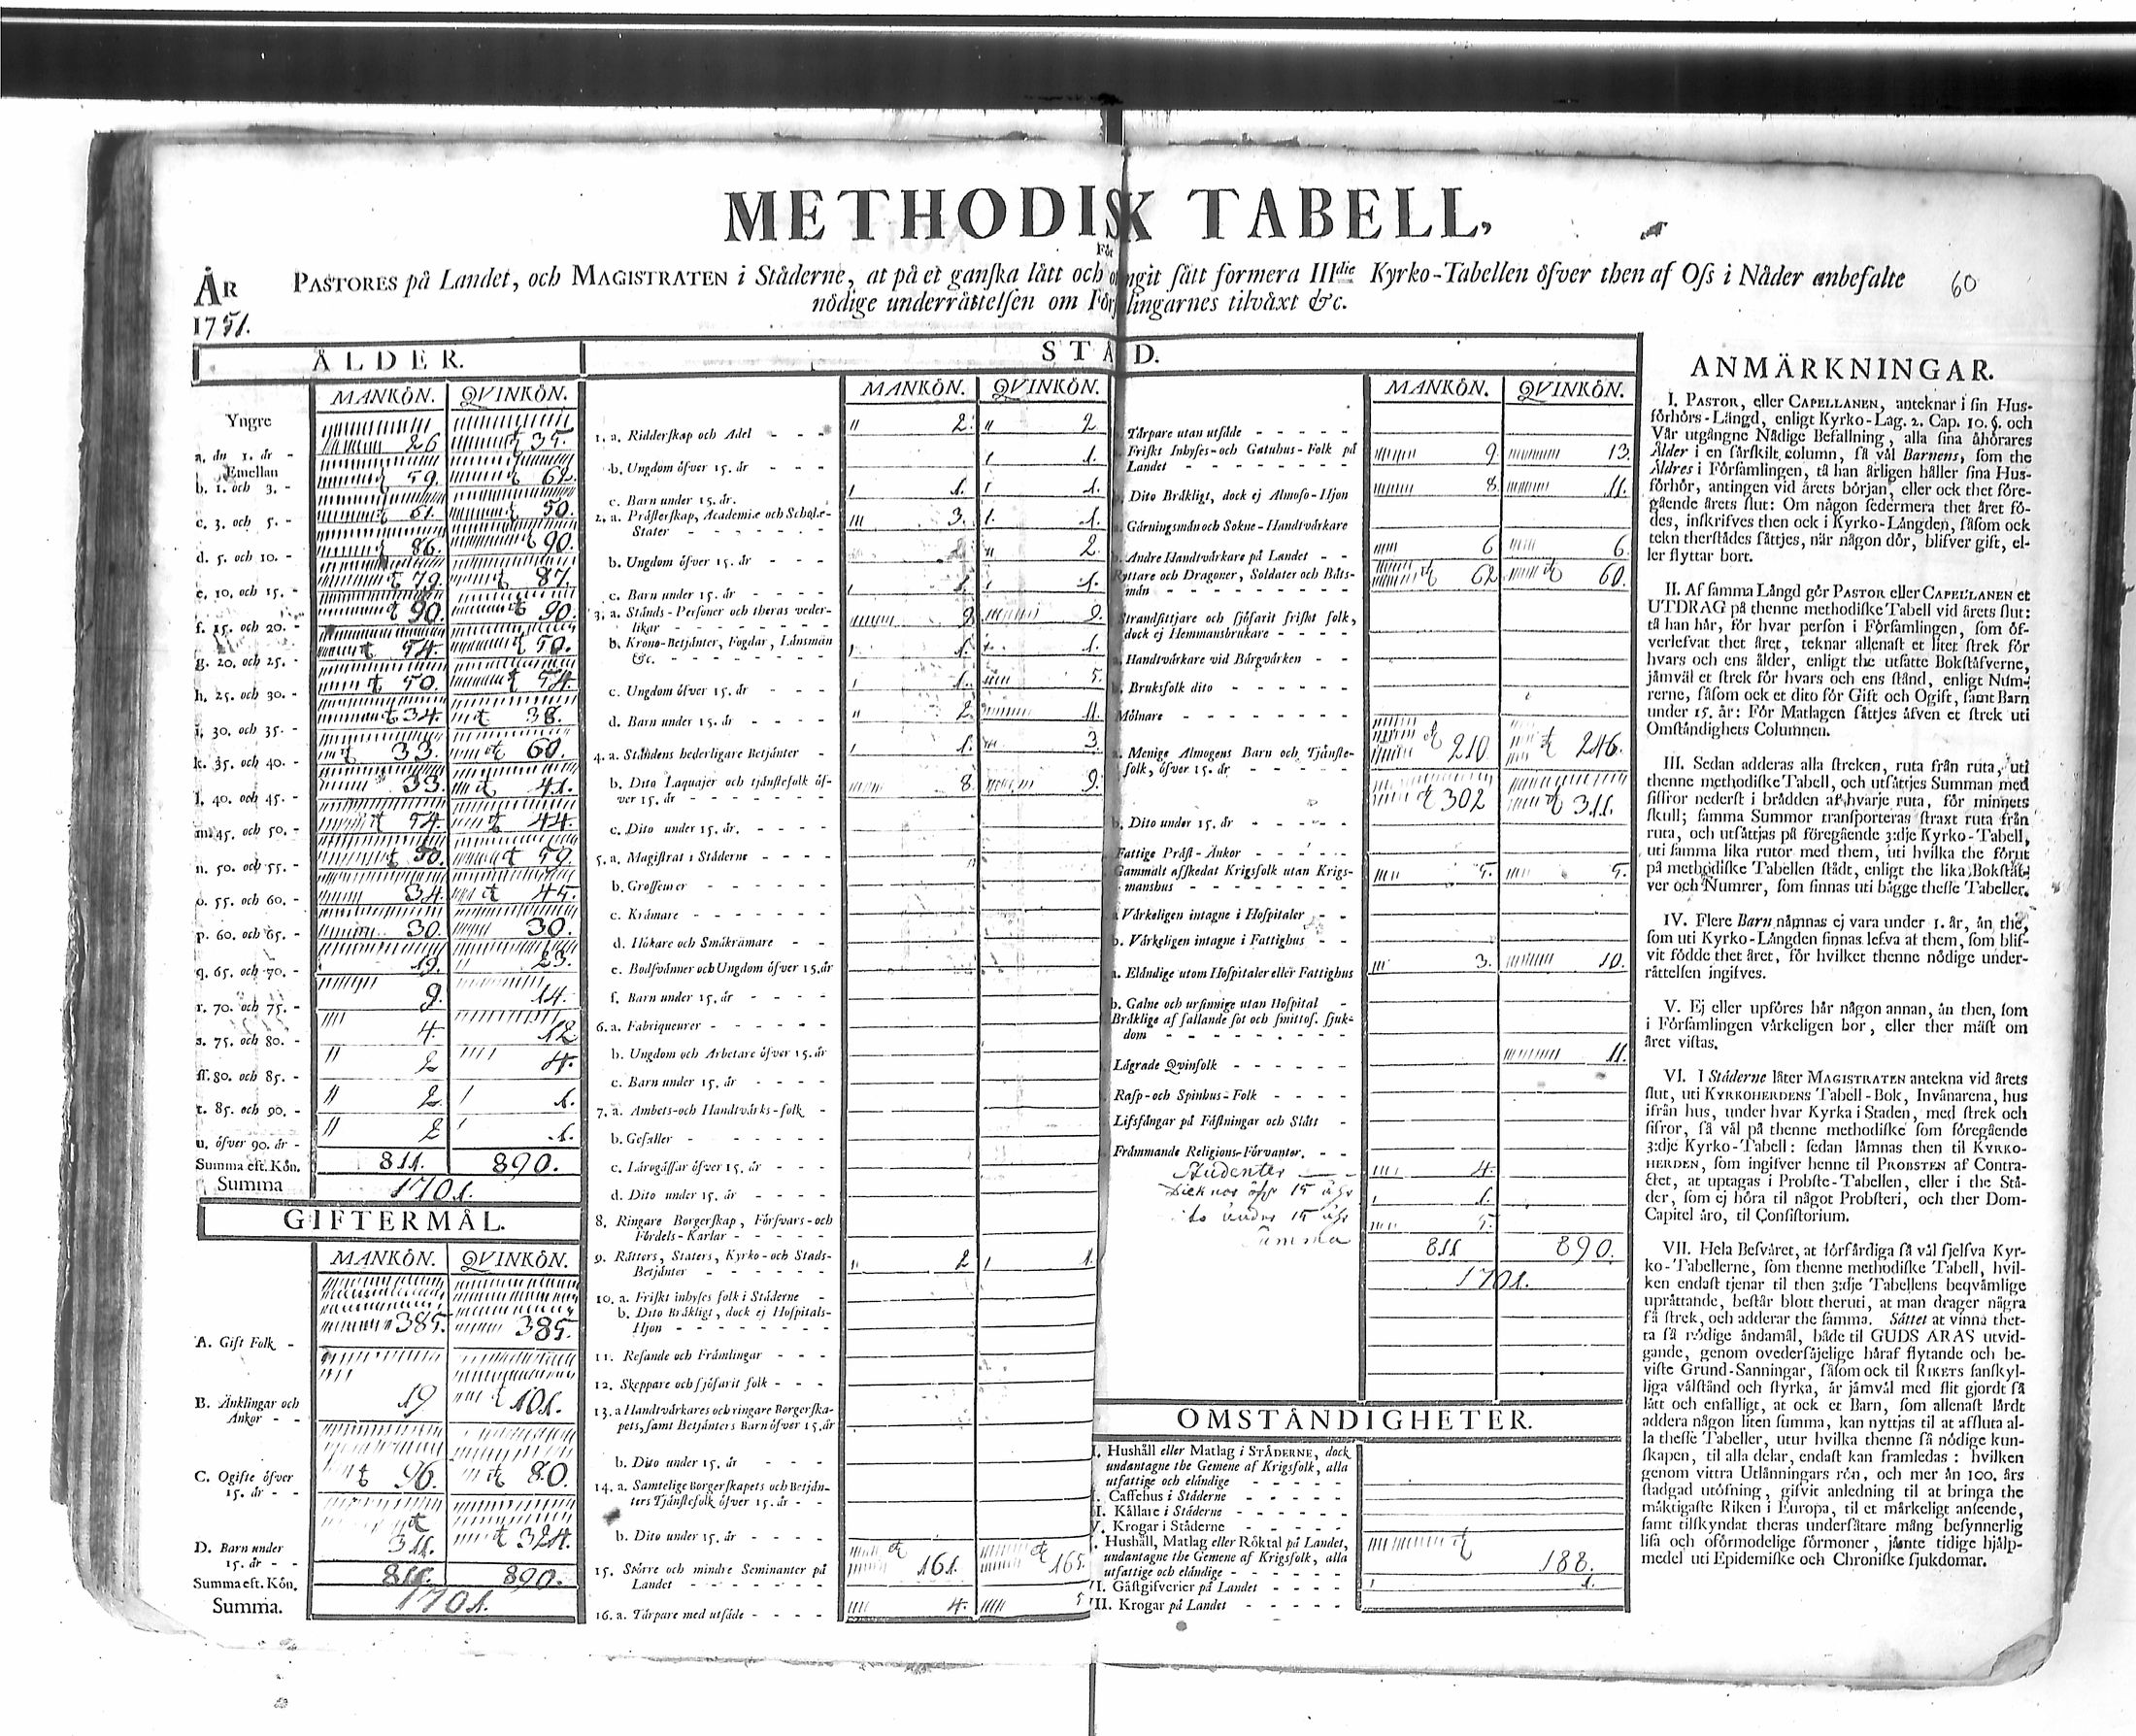 METHODISK TABELL,
För
ÅR
1751.
PASTORES på Landet, och MAGISTRATEN i Städerne, at på et ganska lätt och ongit sätt formera IIIdie Kyrko-Tabellen öfver then af Oss i Nåder anbefalte
60
nödige underrättelsen om Församlingarnes tilväxt &c.
ÅLDER.
MANKÖN. QVINKÖN.
Yngre
a. än 1. år - 26 35.
Emellan
b. 1. och 3. - 59. 62.
c. 3. och 5. - 61. 50.
d. 5. och 10. - 86. 90.
e. 10. och 15. - 79. 87.
f. 15. och 20. - 90. 90.
g. 20. och 25. - 54. 50.
h. 25. och 30. - 50. 54.
i. 30. och 35. - 34. 38.
k. 35. och 40. - 33. 60.
l. 40. och 45. - 33. 41.
m. 45. och 50. - 54. 44.
n. 50. och 55. - 50. 59.
o. 55. och 60. - 34. 45.
p. 60. och 65. - 30. 30.
q. 65. och 70. - 19. 23.
r. 70. och 75. - 9. 14.
s. 75. och 80. - 4. 12
ss. 80. och 85. - 2 4.
t. 85. och 90. - 2 1.
u. öfver 90. år - 2 1.
Summa eft. Kön. 811. 890.
Summa 1701.
GIFTERMÅL.
MANKÖN. QVINKÖN.
A. Gift Folk - 385. 385.
B. Änklingar och
Änkor - - 19 101.
C. Ogifte öfver
15. år - - 96. 80.
D. Barn under
15. år - - 311. 324.
Summa eft. Kön. 811. 890.
Summa. 1701.
STÅND.
MANKÖN. QVINKÖN.
1. a. Ridderskap och Adel - - - 2. 2
b. Ungdom öfver 15. år - - - - 1.
c. Barn under 15. år. 1. 1.
2. a. Prästerskap, Academiæ och Scholæ-
Stater - - - - - - 3. 1.
b. Ungdom öfver 15. år - - - - 2.
c. Barn under 15. år - - - - 1. 1.
3. a. Stånds-Personer och theras veder-
likar - - - - - - - 9. 9.
b. Krono-Betjänter, Fogdar, Länsmän
&c. - - - - - - - 1. 1.
c. Ungdom öfver 15. år - - - - 1. 5.
d. Barn under 15. år - - - - 2 11.
4. a. Ståndens hederligare Betjänter - 1. 3.
b. Dito Laquajer och tjänstefolk öf-
ver 15. år - - - - - - 8. 9.
c. Dito under 15. år. - - - -
5. a. Magistrat i Städerne - - - -
b. Grosseurer - - - - - -
c. Krämare - - - - - - -
d. Hökare och Småkrämare - -
e. Bodsvänner och Ungdom öfver 15. år
f. Barn under 15. år - - - -
6. a. Fabriqueurer - - - - - -
b. Ungdom och Arbetare öfver 15. år
c. Barn under 15. år - - - -
7. a. Ambets-och Handtvärks-folk -
b. Gesäller - - - - - - -
c. Lärogåssar öfver 15. år - - -
d. Dito under 15. år - - - -
8. Ringare Borgerskap, Försvars-och
Fördels-Karlar - - - - -
9. Rätters, Staters, Kyrko-och Stads-
Betjänter - - - - - - 2 1.
10. a. Friskt inhyses folk i Städerne -
b. Dito Bräkligt, dock ej Hospitals-
Hjon - - - - - - - -
11. Resande och Främlingar - - -
12. Skeppare och sjöfarit folk - - -
13. a Handtvärkares och ringare Borgerska-
pets, samt Betjänters Barn öfver 15. år
b. Dito under 15. år - - -
14. a. Samtelige Borgerskapets och Betjän-
ters Tjänstefolk öfver 15. år - -
b. Dito under 15. år - - - -
15. Större och mindre Seminanter på
Landet - - - - - - - 161. 165.
16. a. Tårpare med utsäde - - - - 4. 5
MANKÖN. QVINKÖN.
Tårpare utan utsäde - - - - -
Friskt Inhyses-och Gatuhus-Folk på
Landet - - - - - - - 9. 13.
Dito Bräkligt, dock ej Almoso-Hjon 8. 11.
Gärningsmän och Sokne-Handtvärkare
Andre Handtvärkare på Landet - - 6 6.
Ryttare och Dragoner, Soldater och Båts-
män - - - - - - - - 62 60.
Strandsittjare och sjöfarit friskt folk,
dock ej Hemmansbrukare - - - -
Handtvärkare vid Bärgvärken - -
Bruksfolk dito - - - - - -
Mölnare - - - - - - - -
a. Menige Almogens Barn och Tjänste-
folk, öfver 15. år - - - - - 210 246.
b. Dito under 15. år - - - - - 302 311.
Fattige Präst-Änkor - - - - -
Gammalt afskedat Krigsfolk utan Krigs-
manshus - - - - - - - 5. 5.
a Värkeligen intagne i Hospitaler - -
b. Värkeligen intagne i Fattighus - -
a. Eländige utom Hospitaler eller Fattighus 3. 10.
b. Galne och ursinnige utan Hospital -
Bräklige af fallande sot och smittos. sjuk-
dom - - - - - - - -
Lägrade Qvinfolk - - - - - - 11.
Rasp-och Spinhus-Folk - - - -
Lifsfångar på Fästningar och Slått -
Främmande Religions-Förvanter. - -
Studenter 4.
Dieknar öfr 15 åhr 1.
dito under 15 åhr 5.
Summa 811 890.
1701.
OMSTÄNDIGHETER.
I. Hushåll eller Matlag i STÄDERNE, dock
undantagne the Gemene af Krigsfolk, alla
utfattige och eländige - - - - -
Caffehus i Städerne - - - - -
Källare i Städerne - - - - - -
Krogar i Städerne - - - - - -
Hushåll, Matlag eller Röktal på Landet,
undantagne the Gemene af Krigsfolk, alla
utfattige och eländige - - - - - - 188.
VI. Gästgifverier på Landet - - - - 1.
VII. Krogar på Landet - - - - -
ANMÄRKNINGAR.
I. PASTOR, eller CAPELLANEN, anteknar i sin Hus-
förhörs-Längd, enligt Kyrko-Lag. 2. Cap. 10. §. och
Vår utgångne Nådige Befallning, alla sina åhörares
Ålder i en särskilt column, så väl Barnens, som the
Äldres i Församlingen, tå han årligen håller sina Hus-
förhör, antingen vid årets början, eller ock thet före-
gående årets slut: Om någon sedermera thet året fö-
des, inskrifves then ock i Kyrko-Längden, såsom ock
tekn therstädes sättjes, när någon dör, blifver gift, el-
ler flyttar bort.
II. Af samma Längd gör PASTOR eller CAPELLANEN et
UTDRAG på thenne methodiske Tabell vid årets slut:
tå han här, för hvar person i Församlingen, som öf-
verlefvat thet året, teknar allenast et litet strek för
hvars och ens ålder, enligt the utsatte Bokstäfverne,
jämväl et strek för hvars och ens stånd, enligt Num-
rerne, såsom ock et dito för Gift och Ogift, samt Barn
under 15. år: För Matlagen sättjes äfven et strek uti
Omständighets Columnen.
III. Sedan adderas alla streken, ruta från ruta, uti
thenne methodiske Tabell, och utsättjes Summan med
siffror nederst i brädden af hvarje ruta, för minnets
skull; samma Summor transporteras straxt ruta från
ruta, och utsättjas på föregående 3:dje Kyrko-Tabell,
uti samma lika rutor med them, uti hvilka the förut
på methodiske Tabellen städt, enligt the lika Bokstäf-
ver och Numrer, som finnas uti bägge thesse Tabeller.
IV. Flere Barn nämnas ej vara under 1. år, än the,
som uti Kyrko-Längden finnas lefva af them, som blif-
vit födde thet året, för hvilket thenne nödige under-
rättelsen ingifves.
V. Ej eller upföres här någon annan, än then, som
i Församlingen värkeligen bor, eller ther mäst om
året vistas.
VI. I Städerne låter MAGISTRATEN antekna vid årets
slut, uti KYRKOHERDENS Tabell-Bok, Invånarena, hus
ifrån hus, under hvar Kyrka i Staden, med strek och
siffror, så väl på thenne methodiske som föregående
3:dje Kyrko-Tabell: sedan lämnas then til KYRKO-
HERDEN, som ingifver henne til PROBSTEN af Contra-
ctet, at uptagas i Probste-Tabellen, eller i the Stä-
der, som ej höra til något Probsteri, och ther Dom-
Capitel äro, til Consistorium.
VII. Hela Besväret, at förfärdiga så väl sjelfva Kyr-
ko-Tabellerne, som thenne methodiske Tabell, hvil-
ken endast tjenar til then 3:dje Tabellens beqvämlige
uprättande, består blott theruti, at man drager några
få strek, och adderar the samma. Sättet at vinna thet-
ta så nödige ändamål, både til GUDS ÄRAS utvid-
gande, genom ovedersäjelige häraf flytande och be-
viste Grund-Sanningar, såsom ock til RIKETS sanskyl-
liga välstånd och styrka, är jämväl med flit gjordt så
lätt och enfaldigt, at ock et Barn, som allenast lärdt
addera någon liten summa, kan nyttjas til at afsluta al-
la thesse Tabeller, utur hvilka thenne så nödige kun-
skapen, til alla delar, endast kan framledas: hvilken
genom vittra Utlänningars rön, och mer än 100. års
stadgad utöfning, gifvit anledning til at bringa the
mäktigaste Riken i Europa, til et märkeligt anseende,
samt tilskyndat theras undersåtare mång besynnerlig
lisa och oförmodelige förmoner, jämte tidige hjälp-
medel uti Epidemiske och Chroniske sjukdomar.